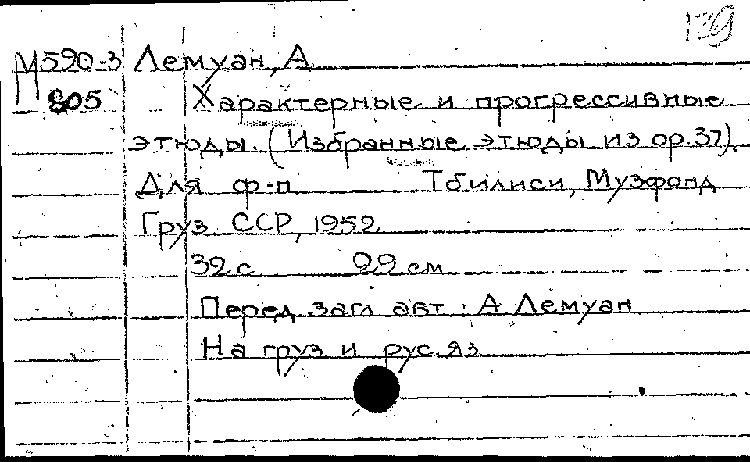 139
М590-3 Лемуан, А
805 Характерные и прогрессивные
этюды. (Избранные этюды из ор. 37).
Для ф-п Тбилиси, Музфонд
Груз. ССР, 1952.
32 с 29 см.
Перед загл авт: А Лемуан
На груз и рус. яз